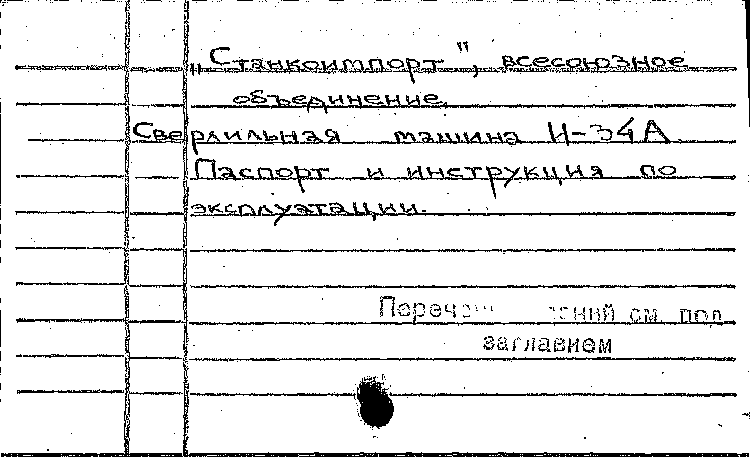 „Станкоимпорт", всесоюзное
объединение.
Сверлильная машина И-34А
Паспорт и инструкция по
эксплуатации.
см. под
заглавием